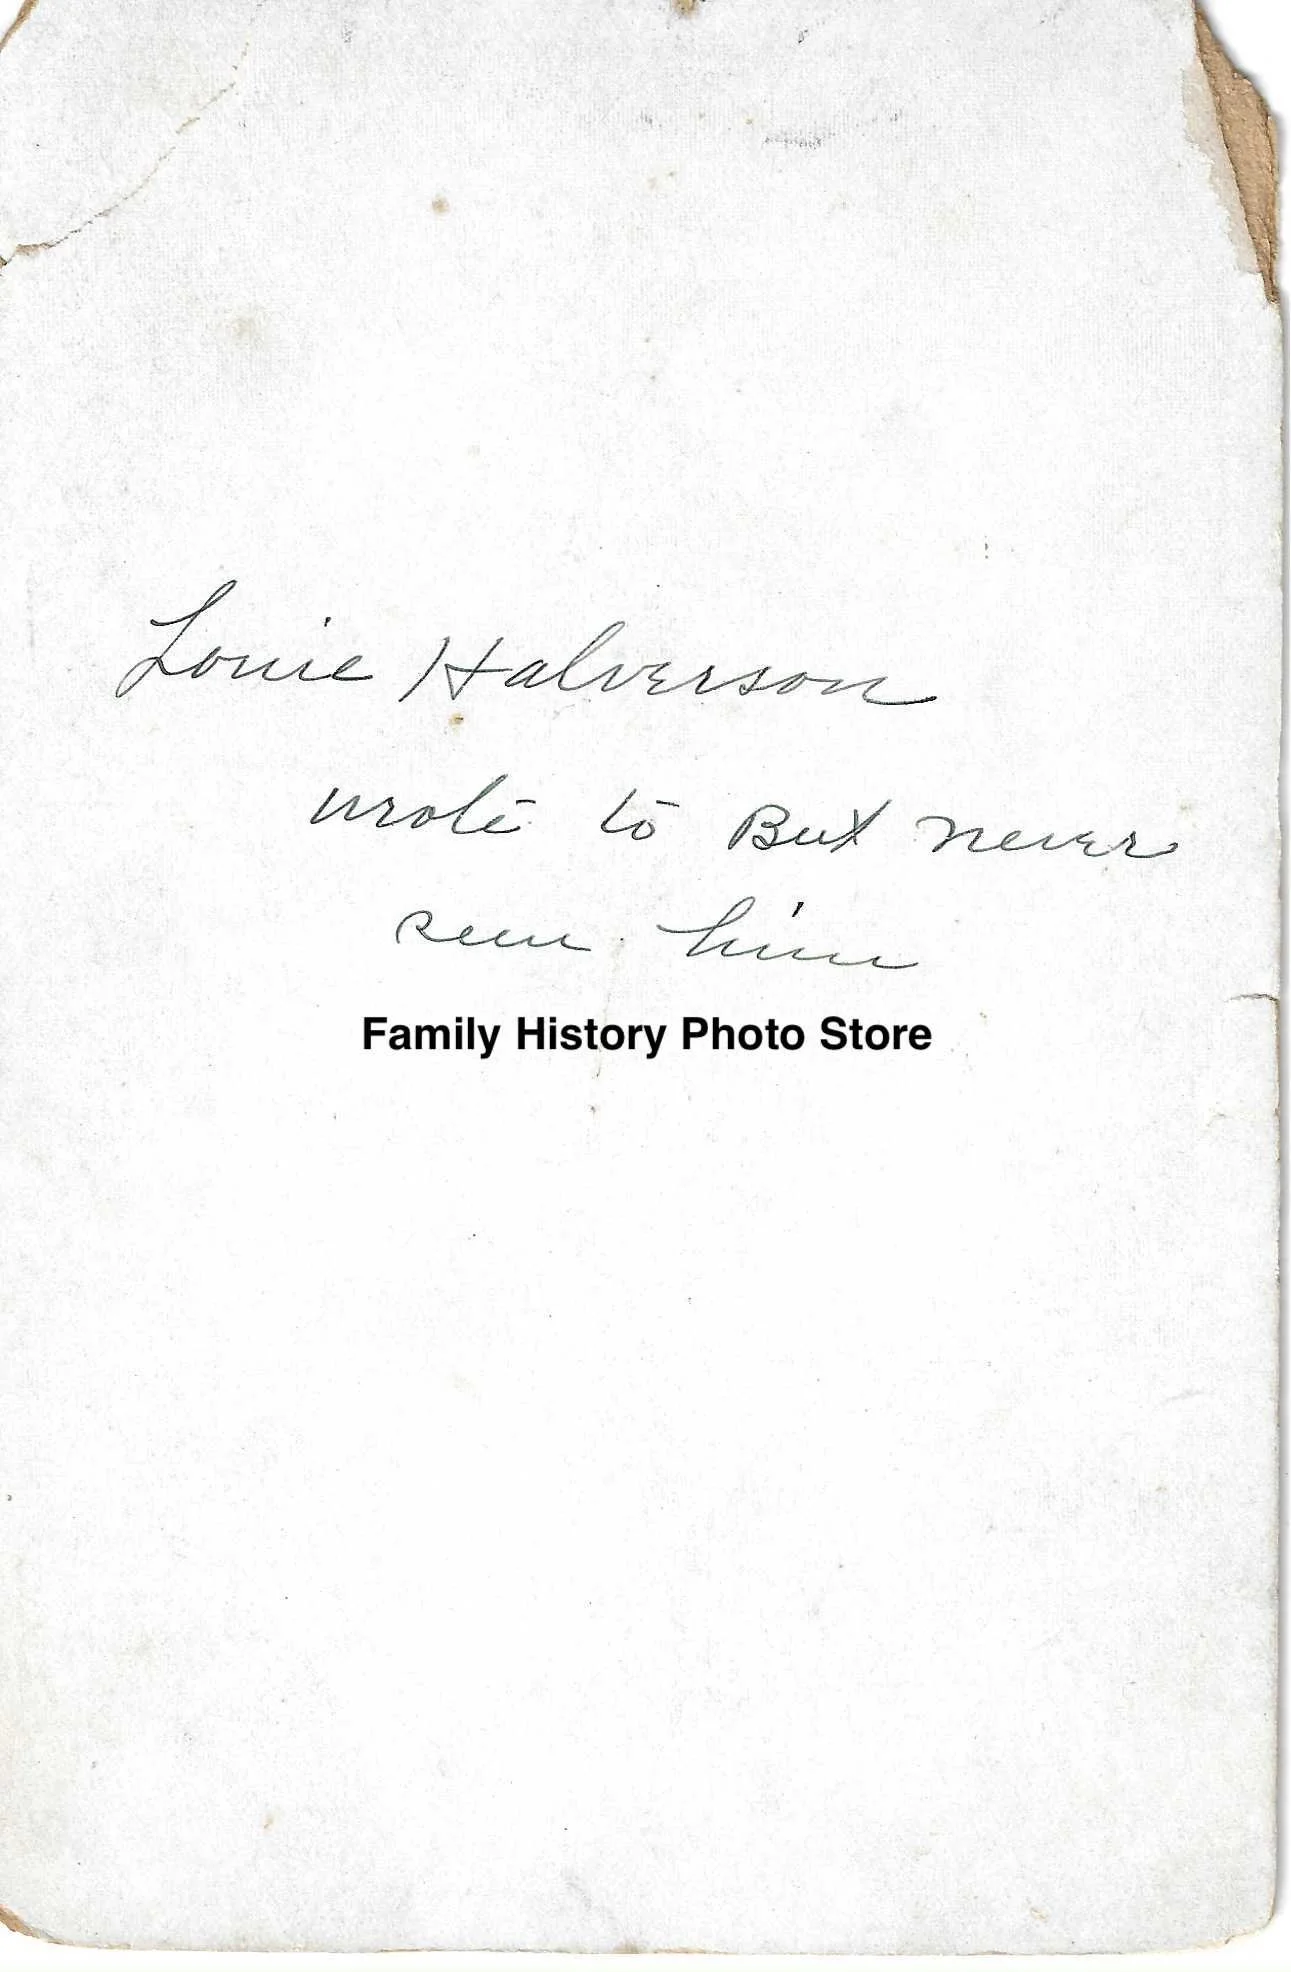 Louie Halverson
wrote to But never
seen him
Family History Photo Store